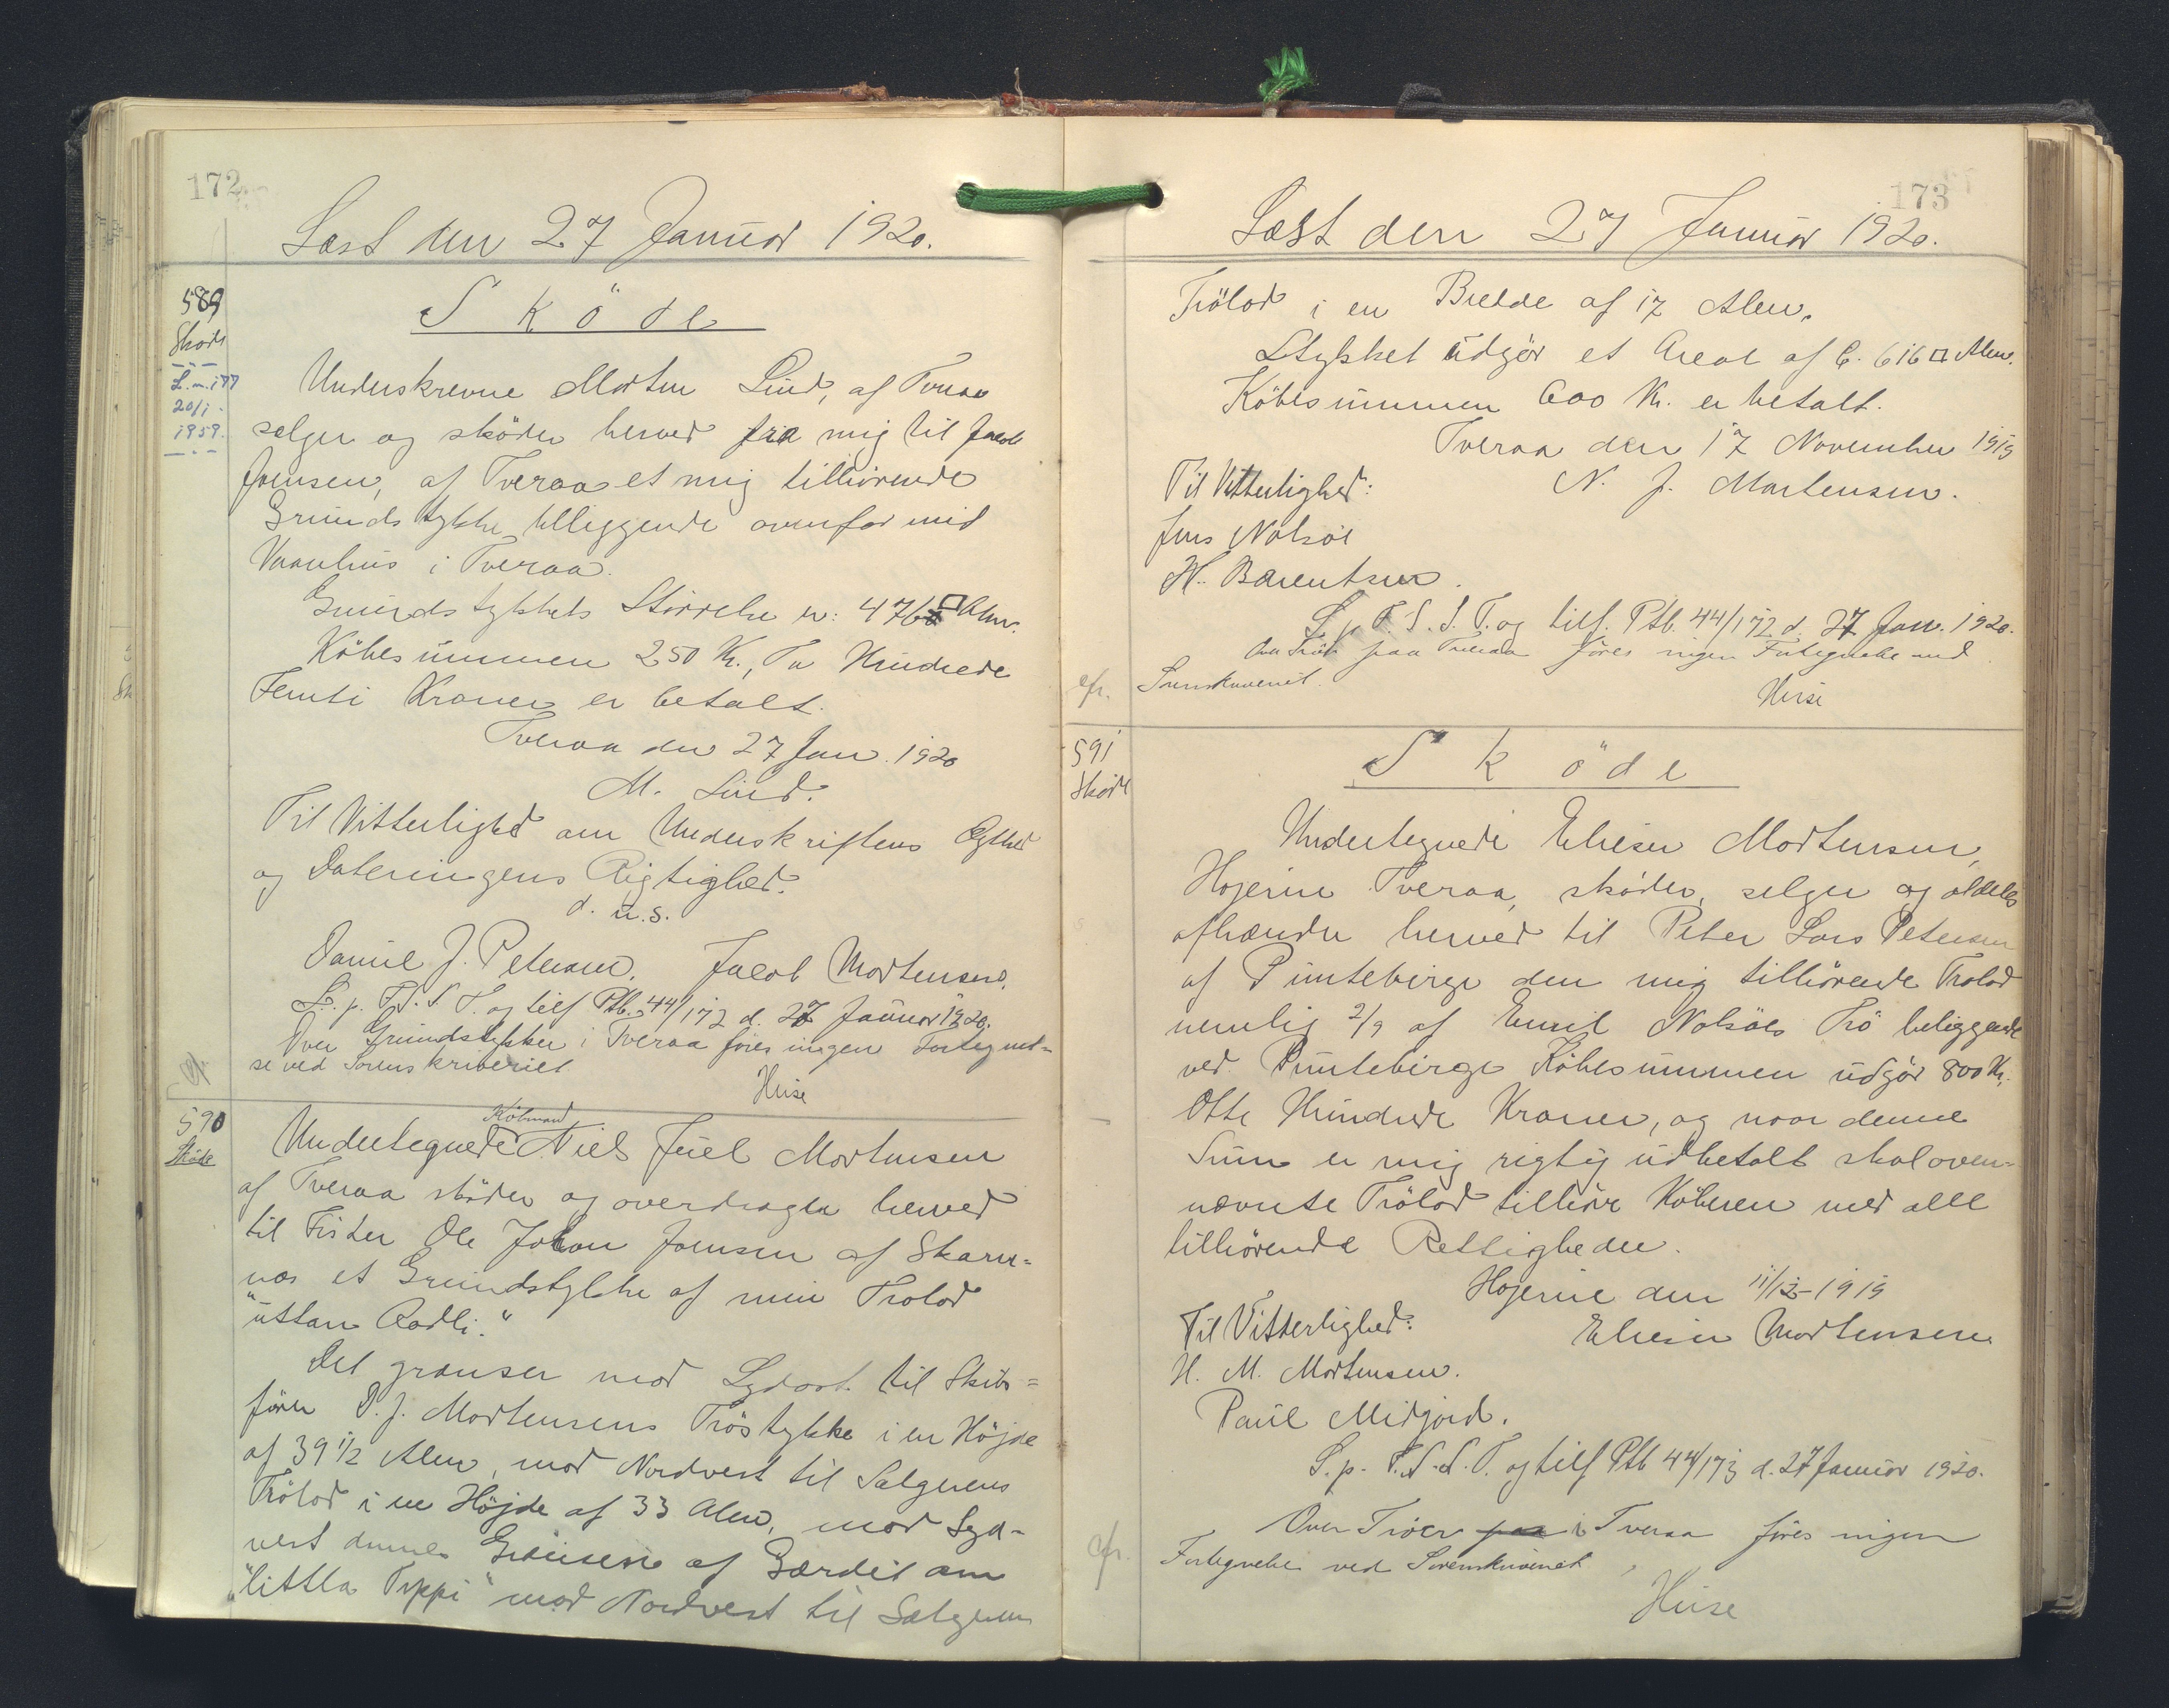 172
Læst den 27 Januar 1920.
589
Skøde
L. m. 177
20/1 -
1959.
Sköde
Underskrevne Morten Lind, af Tveraa
selger og sköder herved fra mig til Jacob
Joensen, af Tveraa et mig tilhörende
Grundstykke beliggende ovenfor mit
Vaanhus i Tveraa.
Grundstykkets Störrelse er: 476 □ Alen.
Köbesummen 250 Kr., To Hundrede
Femti Kroner er betalt.
Tveraa den 27 Jan. 1920
M. Lind.
Til Vitterlighed om Underskriftens Ægthed
og Dateringens Rigtighed.
d. u. s.
Daniel J. Petersen. Jacob Mortensen.
L. p. F. S. S. T. og tilf Ptb. 44/172 d. 27 Januar 1920.
Over Grundstykker i Tveraa föres ingen Fortegnel=
se ved Sorenskriveriet
Huse
590
Sköde
Købmand
Undertegnede Niels Juel Mortensen
af Tveraa sköder og overdrager herved
til Fisker Ole Johan Joensen af Skarv=
næs et Grundstykke af min Trølod
"uttan Rødli."
Det grænser mod Sydost til Skibs=
förer D. J. Mortensens Tröstykke i en Höjde
af 39 1/2 Alen, mod Nordvest til Sælgerens
Trölod i en Höjde af 33 Alen, mod Syd-
vest dannes Grænsen af Gærdet om
"littla Trppi" mod Nordvest til Sælgerens
173
Læst den 27 Januar 1920.
Trölod i en Bredde af 17 Alen.
Stykket udgör et Areal af C. 616 □ Alen.
Köbesummen 600 Kr. er betalt.
Tveraa den 17 November 1919
N. J. Mortensen.
Til Vitterlighed:
Jens Nolsöe
H. Barentsen.
L. p. F. S. S. T. og tilf. Ptb. 44/172 d. 27 Jan. 1920.
Over Trör paa Tveraa föres ingen Fortegnelse ved
Sorenskriveriet.
cfr.
Huse
591
Sköde
Sköde
Undertegnede Elieser Mortensen,
Hojerne Tveraa, sköder, selger og aldeles
afhænder herved til Peter Lars Petersen
af Punteberge den mig tilhörende Trølod
nemlig 2/9 af Emil Nolsöes Trö beliggende
ved Punteberge Köbesummen udgör 800 Kr.
Otte Hundrede Kroner, og naar denne
Sum er mig rigtig udbetalt skal oven=
nævnte Trölod tilhöre Köberen med alle
tilhörende Rettigheder.
Hojerne den 11/12-1919
Til Vitterlighed:
Elieser Mortensen.
H. M. Mortensen.
Paul Midjord.
L. p. F. S. S. T. og tilf Ptb 44/173 d. 27 Januar 1920.
Over Tröer paa i Tveraa föres ingen
Fortegnelse ved Sorenskriveriet
cfr.
Huse